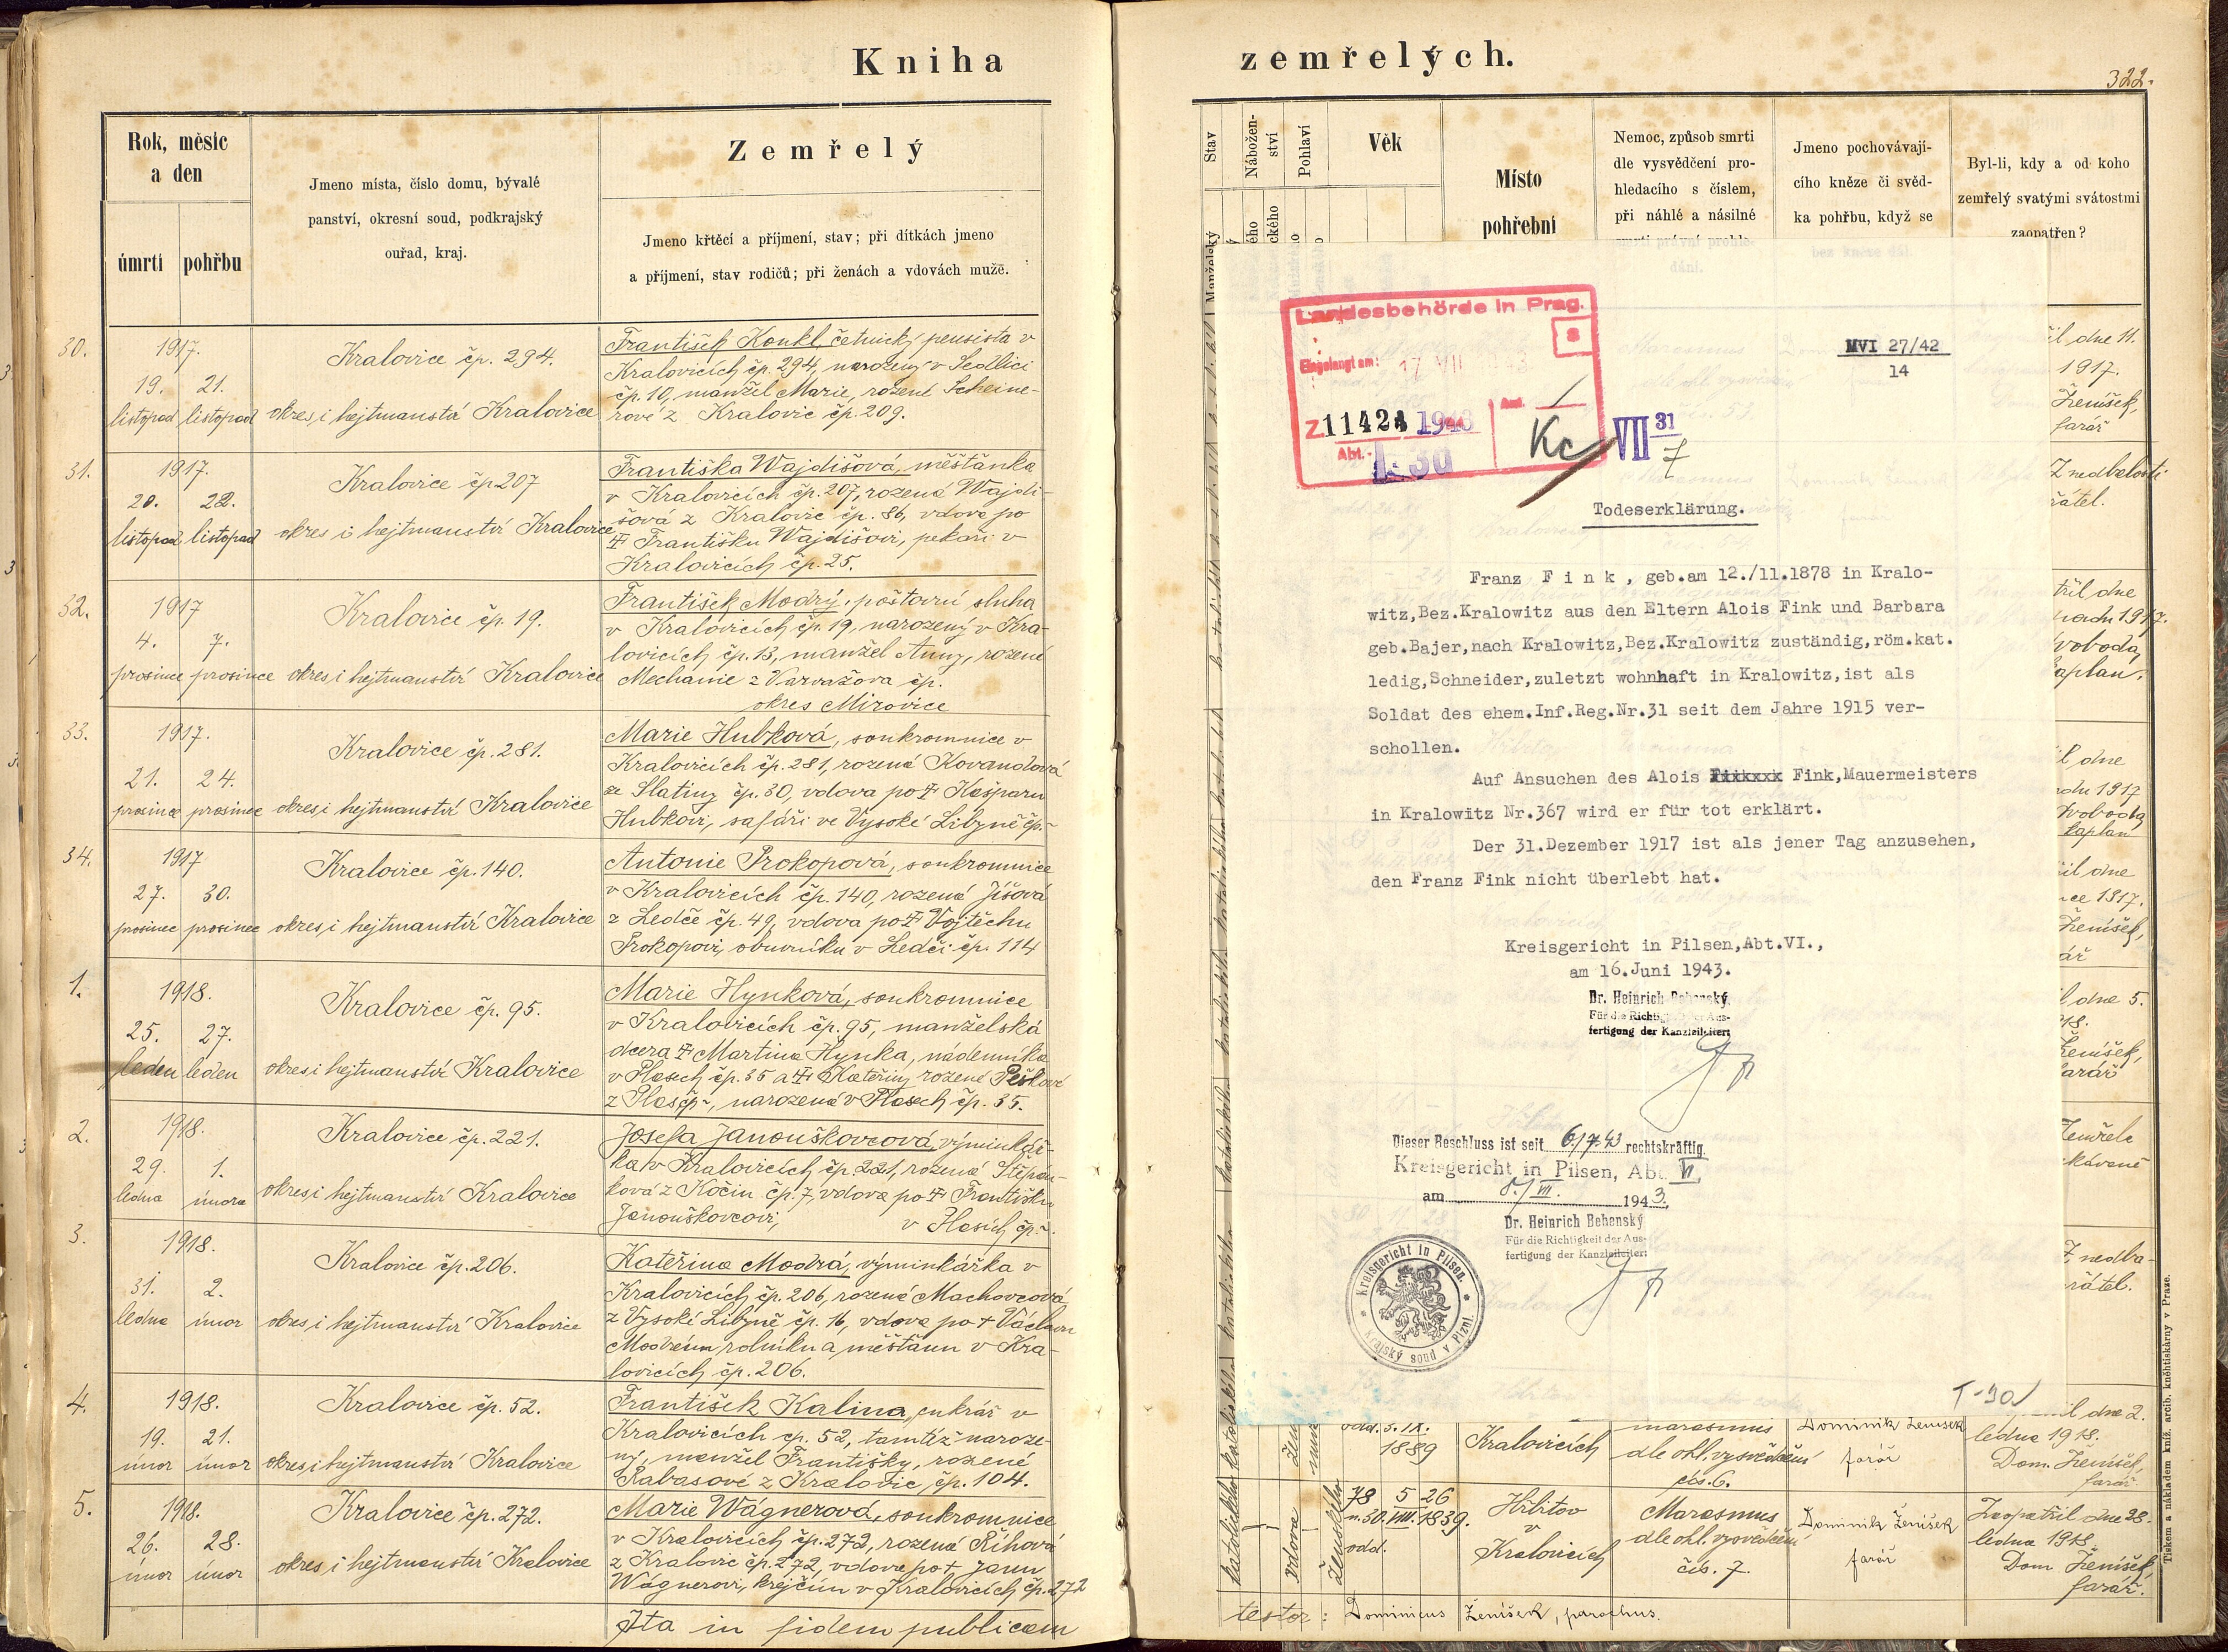 Kniha
zemřelých.
322.
Rok, měsíc
a den
úmrtí
pohřbu
Jmeno místa, číslo domu, bývalé
panství, okresní soud, podkrajský
ouřad, kraj.
Zemřelý
Jmeno křtěcí a příjmení, stav; při dítkách jmeno
a příjmení, stav rodičů; při ženách a vdovách muže.
30.
1917.
19. 21.
listopad listopad
Kralovice čp. 294.
okres i hejtmanství Kralovice
František Konkl, četnický pensista v
Kralovicích čp. 294, narozený v Sedlici
čp. 10, manžel Marie, rozené Scheine-
rové z Kralovic čp. 209.
31.
1917.
20. 22.
listopad listopad
Kralovice čp 207
okres i hejtmanství Kralovice
Františka Wajdišová, měšťanka
v Kralovicích čp. 207, rozená Wajdi-
šová z Kralovic čp. 86, vdova po
Františku Wajdišovi, pekaři v
Kralovicích čp. 25.
32.
1917
4. 7.
prosince prosince
Kralovice čp. 19.
okres i hejtmanství Kralovice
František Modrý, poštovní sluha
v Kralovicích čp. 19, narozený v Kra-
lovicích čp. 13, manžel Anny, rozené
Mechanie z Varvažova čp.
okres Mirovice
33.
1917.
21. 24.
prosince prosince
Kralovice čp. 281.
okres i hejtmanství Kralovice
Marie Hubková, soukromnice v
Kralovicích čp. 281, rozená Kovandová
ze Slatiny čp. 30, vdova po Kašparu
Hubkovi, šafáři ve Vysoké Libyně čp.-
34.
1917
27. 30.
prosince prosince
Kralovice čp. 140.
okres i hejtmanství Kralovice
Antonie Prokopová, soukromnice
v Kralovicích čp. 140, rozená Jíšová
z Ledče čp. 49, vdova po Vojtěchu
Prokopovi, obuvníku v Ledči čp. 114
1.
1918.
25. 27.
leden leden
Kralovice čp. 95.
okres i hejtmanství Kralovice
Marie Hynková, soukromnice
v Kralovicích čp. 95, manželská
dcera Martina Hynka, nádenníka
v Plasech čp. 35 a Kateřiny rozené Peškové
z Plas čp-, narozená v Plasech čp. 35.
2.
1918.
29. 1.
ledna února
Kralovice čp. 221.
okres i hejtmanství Kralovice
Josefa Janouškovcová, výminkář-
ka v Kralovicích čp. 221, rozená Štěpán-
ková z Kočin čp. 7, vdova po Františku
Janouškovcovi, v Hosích čp-.
3.
1918.
31. 2.
ledna únor
Kralovice čp. 206.
okres i hejtmanství Kralovice
Kateřina Modrá, výminkářka v
Kralovicích čp. 206, rozená Machovcová
z Vysoké Libyně čp. 16, vdova po + Václavu
Modrém, rolníku a měšťanu v Kra-
lovicích čp. 206.
4.
1918.
19. 21.
únor únor
Kralovice čp. 52.
okres i hejtmanství Kralovice
František Kalina, cukrář v
Kralovicích čp. 52, tamtéž naroze-
ný, manžel Františky, rozené
Rabasové z Kralovic, čp. 104.
5.
1918.
26. 28.
únor únor
Kralovice čp. 272.
okres i hejtmanství Kralovice
Marie Wágnerová, soukromnice
v Kralovicích čp. 272, rozená Říhová
z Kralovic čp. 272, vdova po + Janu
Wágnerovi, krejčím v Kralovicích čp. 272
Ita in fidem publicam
Stav
Nábožen-
ství
Pohlaví
Věk
Místo
pohřební
Nemoc, způsob smrti
dle vysvědčení pro-
hledacího s číslem,
při náhlé a násilné
Jmeno pochovávají-
cího kněze či svěd-
ka pohřbu, když se
Byl-li, kdy a od koho
zemřelý svatými svátostmi
zaopatřen?
Manželský
Landesbehörde in Prag.
8
Eingelangt am: 17 VII
Z11424 1943
Abt.
I-30
Kc
VII 31
7
MVI 27/42
14
Todeserklärung.
Franz F i n k , geb.am 12./11.1878 in Kralo-
witz,Bez.Kralowitz aus den Eltern Alois Fink und Barbara
geb.Bajer,nach Kralowitz,Bez.Kralowitz zuständig,röm.kat.
ledig,Schneider,zuletzt wohnhaft in Kralowitz,ist als
Soldat des ehem.Inf.Reg.Nr.31 seit dem Jahre 1915 ver-
schollen.
Auf Ansuchen des Alois Fink,Mauermeisters
in Kralowitz Nr.367 wird er für tot erklärt.
Der 31.Dezember 1917 ist als jener Tag anzusehen,
den Franz Fink nicht überlebt hat.
Kreisgericht in Pilsen,Abt.VI.,
am 16.Juni 1943.
Dr. Heinrich Behenský
Für die Richtigkeit der Aus-
fertigung der Kanzleileiter:
Dieser Beschluss ist seit 6/7.43 rechtskräftig.
Kreisgericht in Pilsen, Abt. VI.
am 8./VII. 1943.
Dr. Heinrich Behenský
Für die Richtigkeit der Aus-
fertigung der Kanzleileiter:
Kreisgericht in Pilsen.
Krajský soud v Plzni.
T-30/
il dne 11.
1917.
Ženíšek,
farář
Z nedbalosti
řátel.
třil dne
1917.
Svoboda,
kaplan.
il dne
1917
Svoboda
kaplan
il dne
ce 1917.
Ženíšek,
ář
l dne 5.
Ženíšek,
farář
Zemřela
Z nedba-
řátel.
odd. 5. IX.
1889
Kralovicích
marasmus
dle ohl. vysvědčení
čís. 6.
Dominik Ženíšek
farář
il dne 2.
ledna 1918.
Dom. Ženíšek,
farář
katolického
vdova
ženského
78 5 26
n. 30. VIII. 1839.
odd.
Hřbitov
v
Kralovicích
Marasmus
dle ohl. vysvědčení
čís. 7.
Dominik Ženíšek
farář
Zaopatřil dne 28.
ledna 1918.
Dom. Ženíšek,
farář.
testor: Dominicus Ženíšek, parochus.
Tiskem a nákladem kníž. arcib. kněhtiskárny v Praze.